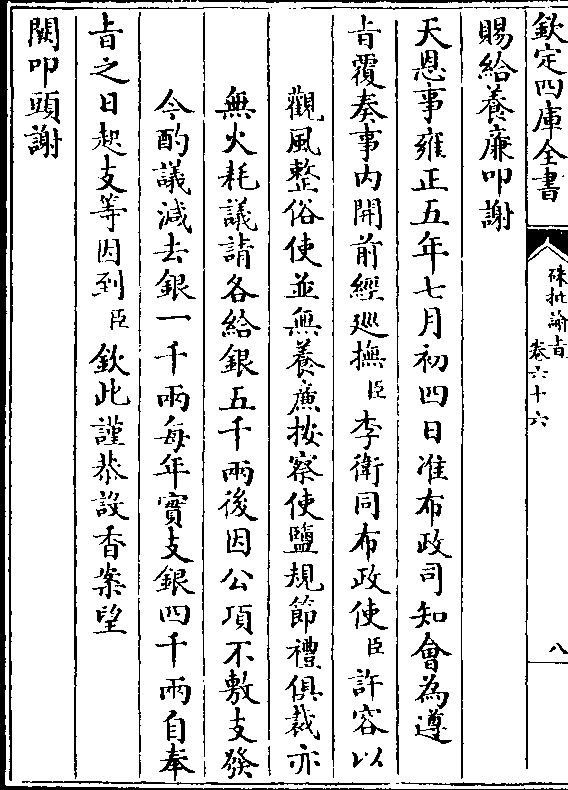 欽定四庫全書
硃批諭旨
卷六十六
八
賜給養廉叩謝
天恩事雍正五年七月初四日准布政司知會為遵
旨覆奏事内開前經廵撫臣李衛同布政使臣許容以
觀風整俗使並無養廉按察使鹽規節禮俱裁亦
無火耗議請各給銀五千兩後因公項不敷支發
今酌議減去銀一千兩每年實支銀四千兩自奉
旨之日起支等因到臣欽此謹恭設香案望
闕叩頭謝